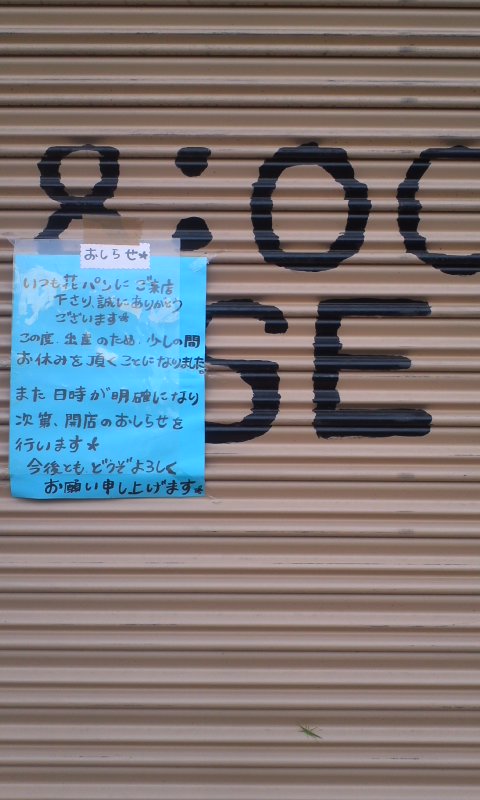 8:00
SE
おしらせ*
いつも花パンにご来店
下さり、誠にありがとう
ございます*
この度、出産のため、少しの間
お休みを頂くことになりました。
また日時が明確になり
次第、開店のおしらせを
行います*
今後とも、どうぞよろしく
お願い申し上げます*